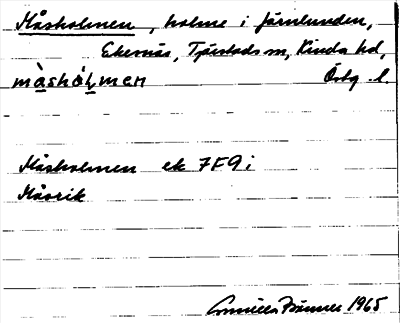 Måsholmen, holme i Järnlunden,
Ekernäs, Tjärstads sn, Kinda hd,
màshòlmen Östg. l.
Måsholmen ek 7F9i
Måsvik
Gunilla 1965